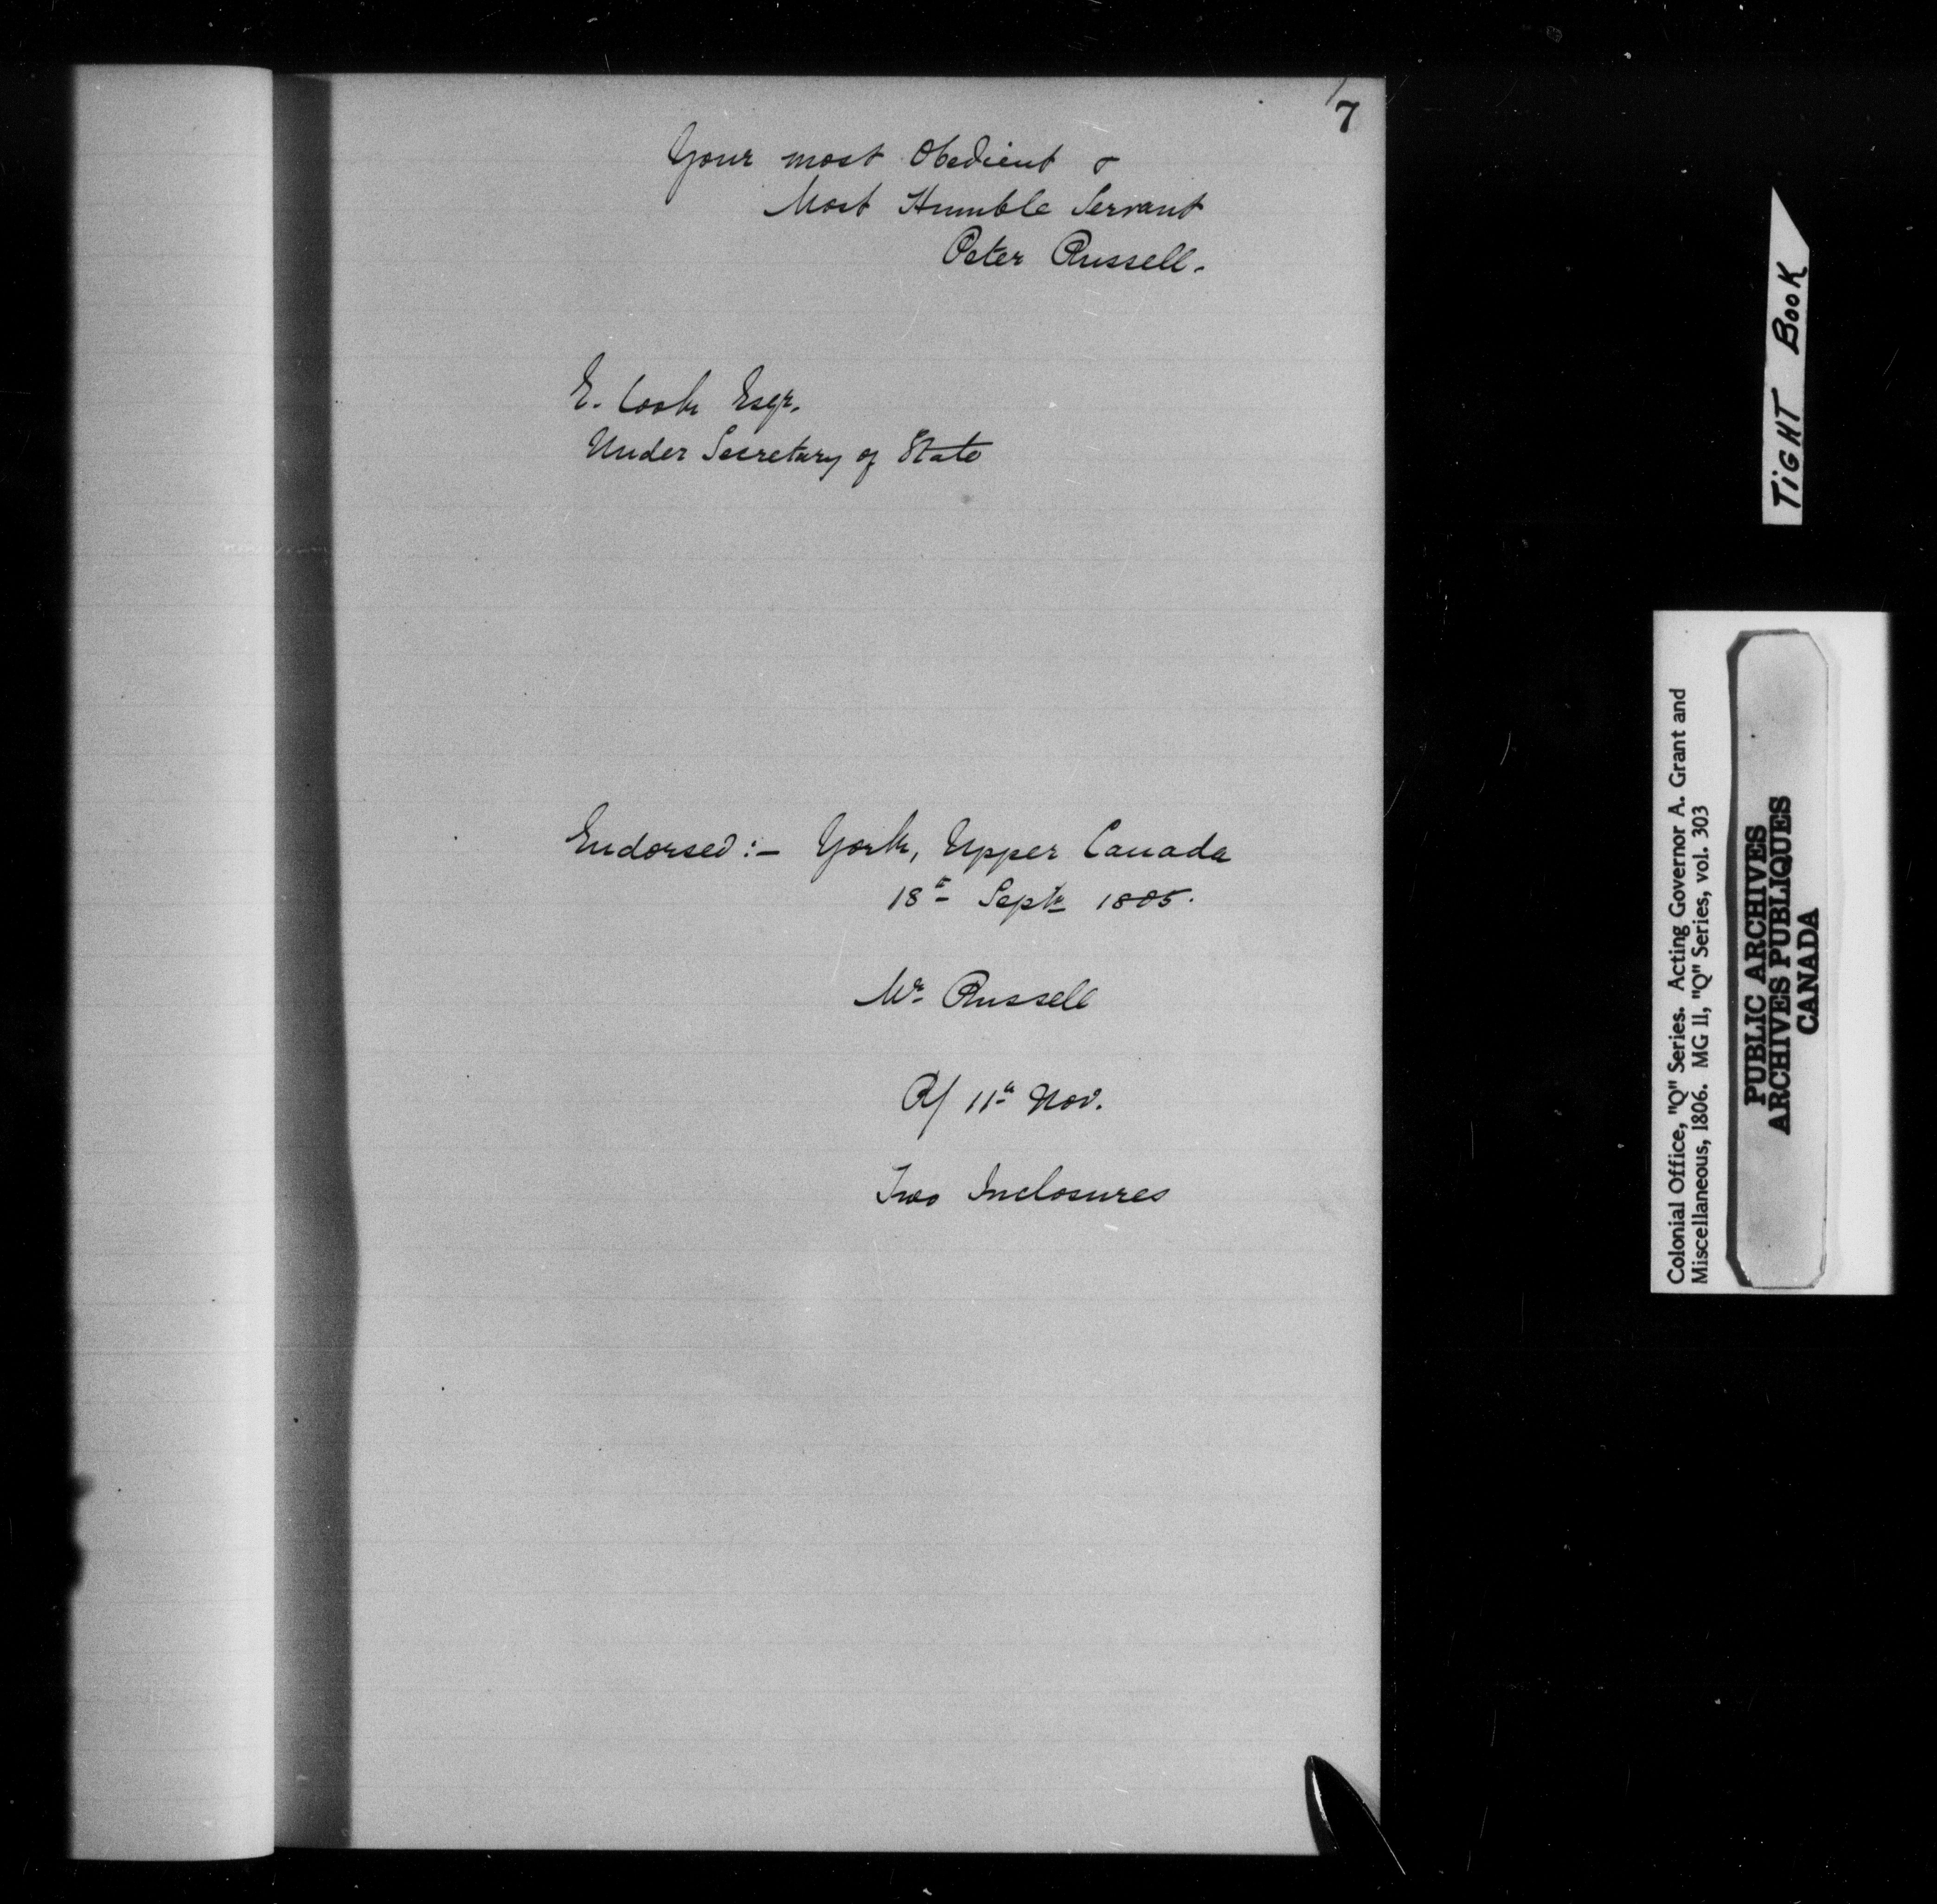 7
Your most Obedient &
Most Humble Servant
Peter Russell.
E. Cook Esqr.
Under Secretary of State
Endorsed:— York, Upper Canada
18th Septr 1805.
Mr Russell
R/ 11th Nov.
Two Inclosures
TIGHT BOOK
Colonial Office, "Q" Series. Acting Governor A. Grant and
Miscellaneous, 1806. MG 11, "Q" Series, vol. 303
PUBLIC ARCHIVES
ARCHIVES PUBLIQUES
CANADA